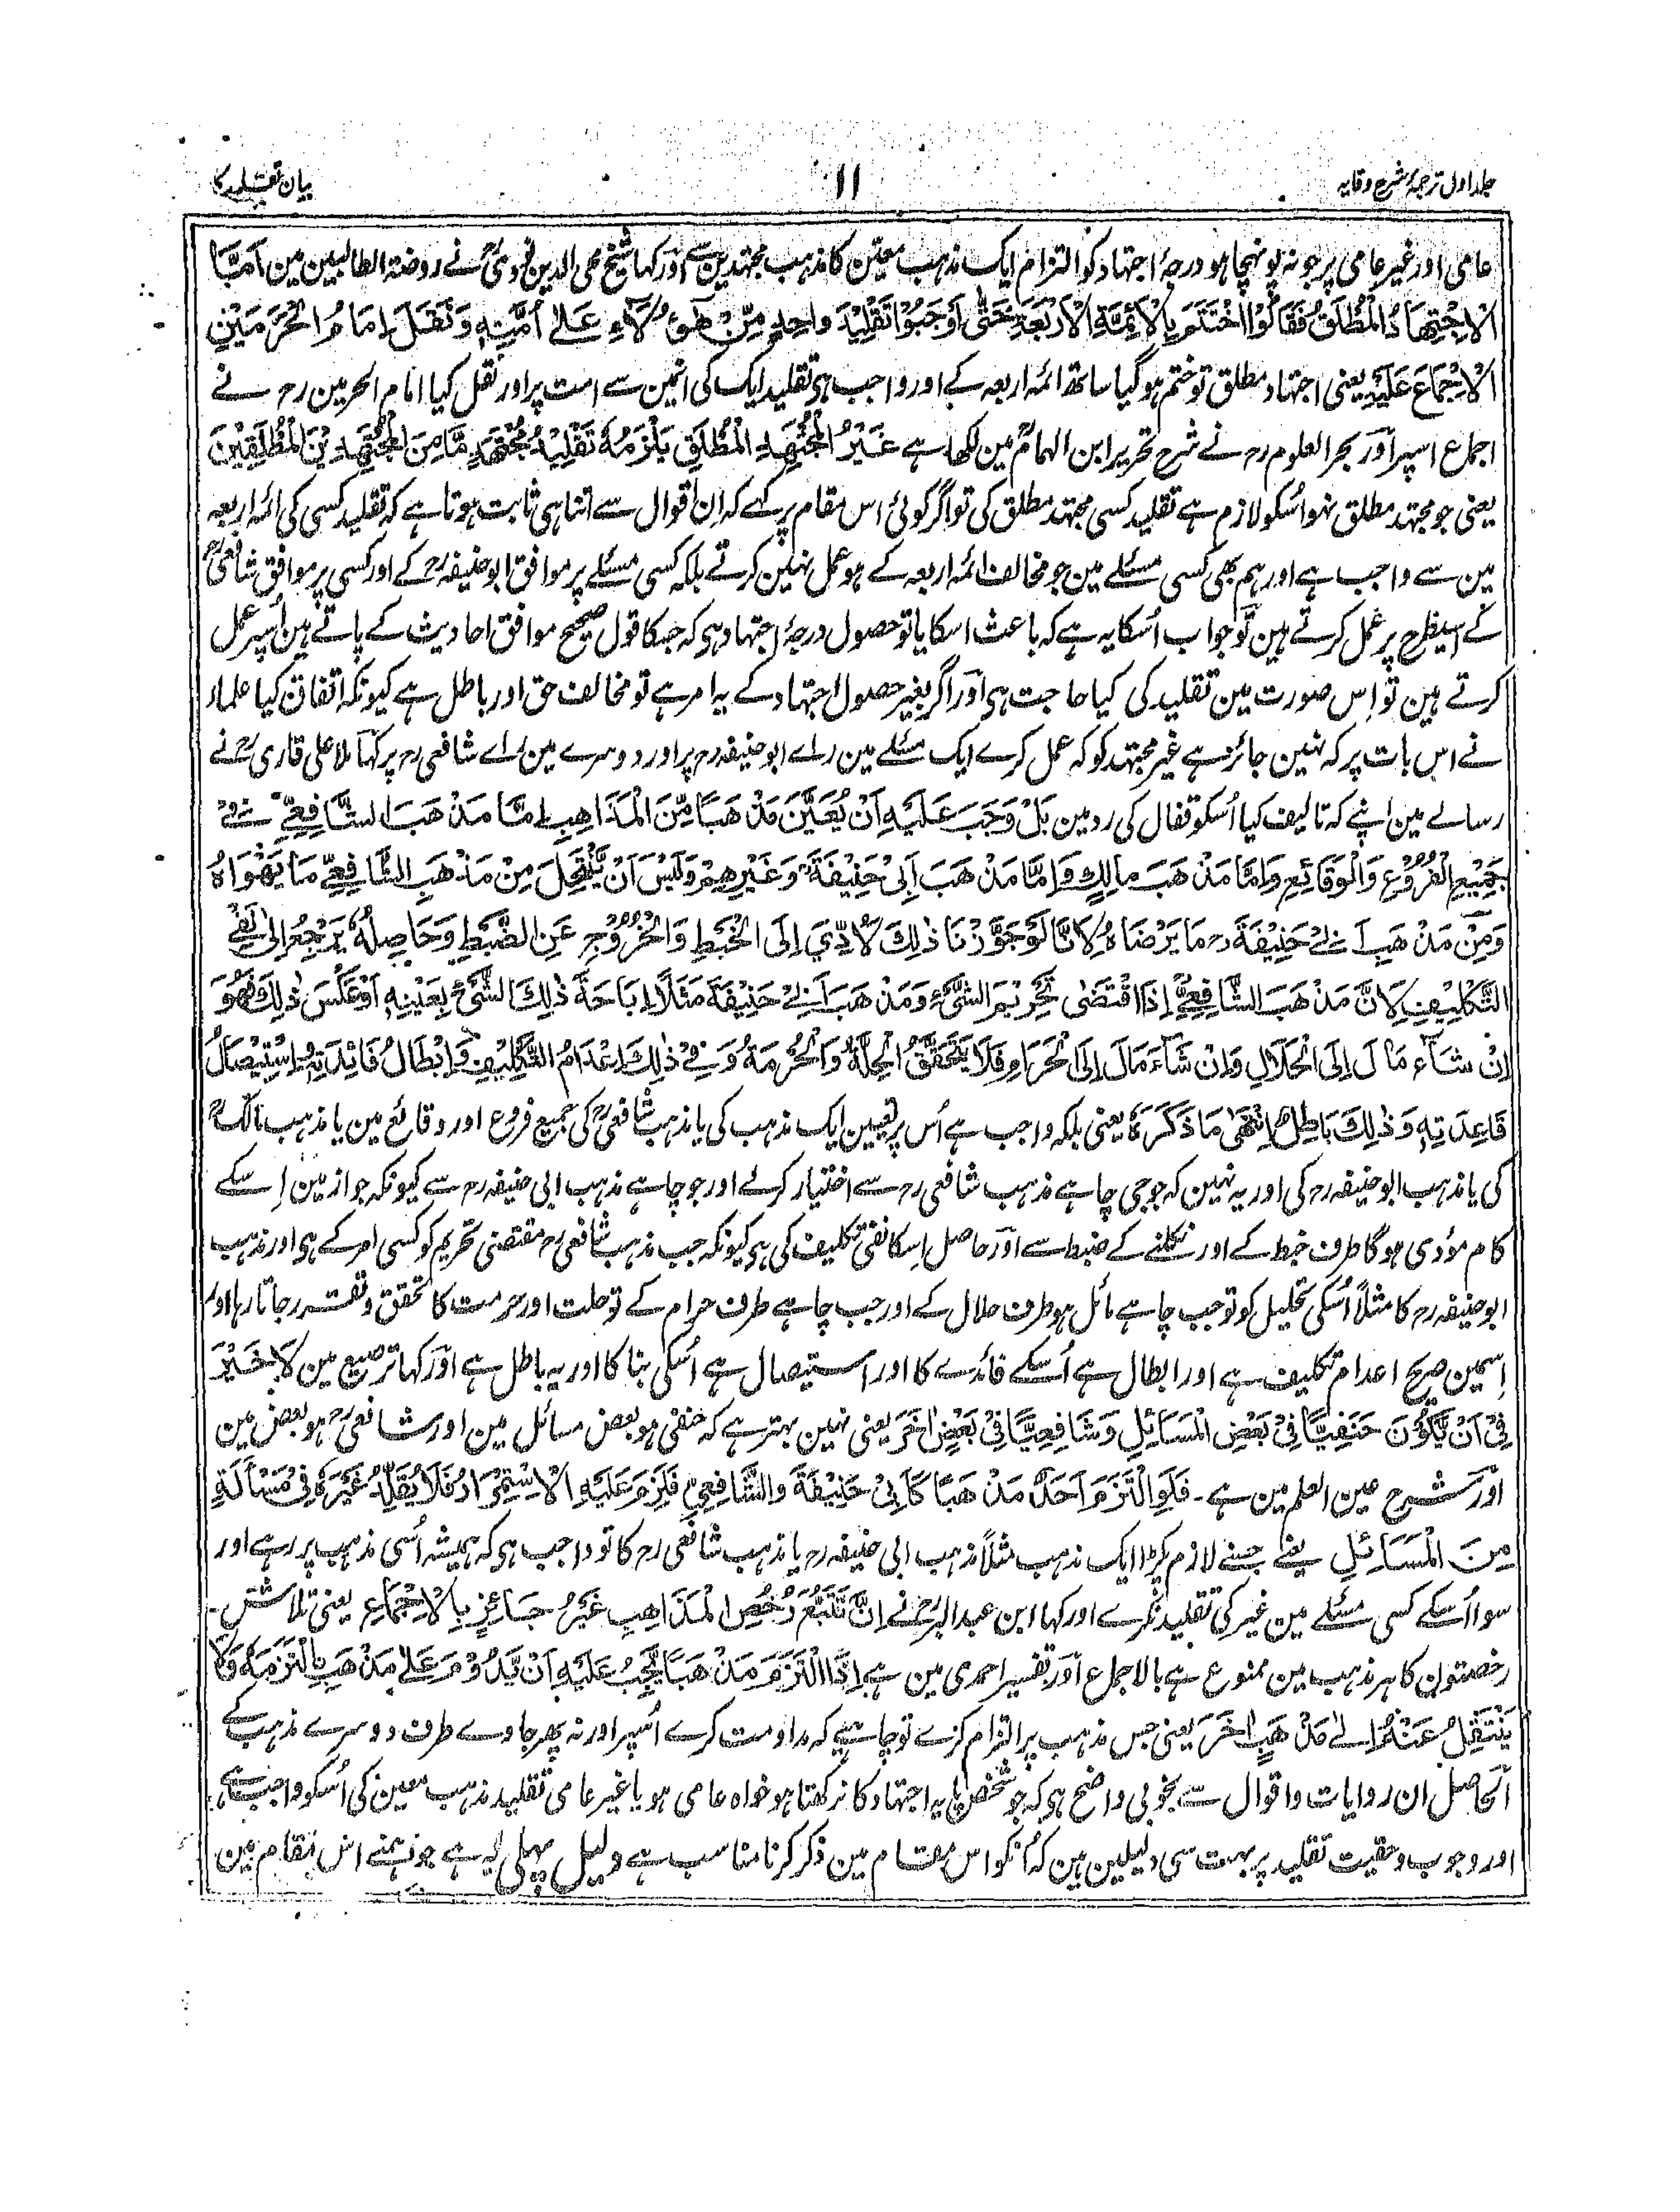 جلد اول ترجمۂ شرح وقایہ
۱۱
بیان تقلید کا
عامی اور غیر عامی پر جو نہ پونہچا ہو درجۂ اجتہاد کو التزام ایک مذہب معیّن کا مذہب مجتہدین سے اور کہا شیخ محی الدین نووی رح نے روضۃ الطالبین مین اَمَّا
الْاِجْتِهَادُ الْمُطْلَقُ فَقَالُوْا اخْتَتَمَ بِالْاَئِمَّةِ الْاَرْبَعَةِ حَتّٰى اَوْجَبُوْا تَقْلِيْدَ واحِدٍ مِّنْ هٰٓؤُلَاءِ عَلٰى اُمَّتِهٖ وَنَقَلَ اِمَامُ الْحَرَمَيْنِ
الْاِجْمَاعَ عَلَيْهِ یعنی اجتہاد مطلق تو ختم ہوگیا ساتھ ائمہ اربعہ کے اور واجب ہی تقلید ایک کی انہین سے امت پر اور نقل کیا امام الحرمین رح نے
اجماع اسپر اور بحر العلوم رح نے شرح تحریر ابن الہمام مین لکھا ہے غَيْرُ الْمُجْتَهِدِ الْمُطْلَقِ يَلْزَمُهٗ تَقْلِيْدُ مُجْتَهِدٍ مَّا مِنَ الْمُجْتَهِدِيْنَ الْمُطْلَقِيْنَ
یعنی جو مجتہد مطلق نہو اُسکو لازم ہے تقلید کسی مجتہد مطلق کی تو اگر کوئی اس مقام پر کہے کہ اِن اقوال سے اتنا ہی ثابت ہوتا ہے کہ تقلید کسی کی ائمہ اربعہ
مین سے واجب ہے اور ہم بھی کسی مسئلے مین جو مخالف ائمہ اربعہ کے ہو عمل نہین کرتے بلکہ کسی مسئلے پر موافق ابو حنیفہ رح کے اور کسی پر موافق شافعی رح
کے اسیطرح پر عمل کرتے ہین تو جواب اُسکا یہ ہے کہ باعث اسکا یا تو حصول درجۂ اجتہاد ہی کہ جسکا قول صحیح موافق احادیث کے پاتے ہین اُسپر عمل
کرتے ہین تو اِس صورت مین تقلید کی کیا حاجت ہی اور اگر بغیر حصول اجتہاد کے یہ امر ہے تو مخالف حق اور باطل ہے کیونکہ اتفاق کیا علماء
نے اس بات پر کہ نہین جائز ہے غیر مجتہد کو کہ عمل کرے ایک مسئلے مین راے ابو حنیفہ رح پر اور دوسرے مین راے شافعی رح پر کہا ملا علی قاری رح نے
رسالے مین اپنے کہ تالیف کیا اُسکو قفال کی رد مین بَلْ وَجَبَ عَلَيْهِ اَنْ يُّعَيِّنَ مَذْهَبًا مِّنَ الْمَذَاهِبِ اِمَّا مَذْهَبَ الشَّافِعِيِّ فِيْ
جَمِيْعِ الْفُرُوْعِ وَالْوَقَائِعِ وَاِمَّا مَذْهَبَ مالِكٍ وَاِمَّا مَذْهَبَ اَبِيْ حَنِيْفَةَ وَغَيْرِهِمْ وَلَيْسَ اَنْ يَّنْتَحِلَ مِنْ مَذْهَبِ الشَّافِعِيِّ مَا يَهْوَاهُ
وَمِنْ مَذْهَبِ اَبِيْ حَنِيْفَةَ رح مَا يَرْضَاهُ لِاَنَّا لَوْ جَوَّزْنَا ذٰلِكَ لَاَدّٰى اِلَى الْخَبْطِ وَالْخُرُوْجِ عَنِ الضَّبْطِ وَحَاصِلُهٗ يَرْجِعُ اِلٰى نَفْيِ
التَّكْلِيْفِ لِاَنَّ مَذْهَبَ الشَّافِعِيِّ اِذَا اقْتَضٰى تَحْرِيْمَ الشَّيْءِ وَمَذْهَبَ اَبِيْ حَنِيْفَةَ مَثَلًا اِبَاحَةَ ذٰلِكَ الشَّيْءِ بِعَيْنِهٖ اَوْ عَكْسَ ذٰلِكَ فَهُوَ
اِنْ شَآءَ مَالَ اِلَى الْحَلَالِ وَاِنْ شَآءَ مَالَ اِلَى الْحَرَامِ فَلَا يَتَحَقَّقُ الْحِلَّةُ وَالْحُرْمَةُ وَفِيْ ذٰلِكَ اِعْدَامُ التَّكْلِيْفِ وَاِبْطَالُ فَائِدَتِهٖ وَاِسْتِيْصَالُ
قَاعِدَتِهٖ وَذٰلِكَ بَاطِلٌ اِنْتَهٰى مَا ذَكَرَهٗ یعنی بلکہ واجب ہے اُس پر تعیین ایک مذہب کی یا مذہب شافعی رح کی جمیع فروع اور وقائع مین یا مذہب مالک رح
کی یا مذہب ابو حنیفہ رح کی اور یہ نہین کہ جو جی چاہے مذہب شافعی رح سے اختیار کرلے اور جو چاہے مذہب ابی حنیفہ رح سے کیونکہ جواز مین اِسکے
کام مؤدی ہوگا طرف خبط کے اور نکلنے کے ضبط سے اور حاصل اِسکا نفی تکلیف کی ہی کیونکہ جب مذہب شافعی رح مقتضی تحریم کو کسی امر کے ہی اور مذہب
ابو حنیفہ رح کا مثلاً اُسکی تحلیل کو تو جب چاہے مائل ہو طرف حلال کے اور جب چاہے طرف حرام کے تو حلت اور حرمت کا تحقق و تقرر جاتا رہا اور
اِسمین صریح اعدام تکلیف ہے اور ابطال ہے اُسکے فائدے کا اور استیصال ہے اُسکی بنا کا اور یہ باطل ہے اور کہا ترصیع مین لَاخَيْرَ
فِيْ اَنْ يَّكُوْنَ حَنَفِيًّا فِيْ بَعْضِ الْمَسَائِلِ وَشَافِعِيًّا فِيْ بَعْضٍ اٰخَرَ یعنی نہین بہتر ہے کہ حنفی ہو بعض مسائل مین اور شافعی رح ہو بعض مین
اور شرح عین العلم مین ہے۔ فَلَوِ الْتَزَمَ اَحَدٌ مَذْهَبًا كَاَبِيْ حَنِيْفَةَ وَالشَّافِعِيِّ فَلَزِمَ عَلَيْهِ الْاِسْتِمْرَارُ فَلَا يُقَلِّدُ غَيْرَهٗ فِيْ مَسْأَلَةٍ
مِنَ الْمَسَائِلِ یعنے جسنے لازم پکڑا ایک مذہب مثلاً مذہب ابی حنیفہ رح یا مذہب شافعی رح کا تو واجب ہی کہ ہمیشہ اُسی مذہب پر رہے اور
سوا اُسکے کسی مسئلے مین غیر کی تقلید نکرے اور کہا ابن عبد البر رح نے اِنَّ تَتَبُّعَ رُخَصِ الْمَذَاهِبِ غَيْرُ جَائِزٍ بِالْاِجْمَاعِ یعنی تلاش
رخصتون کا ہر مذہب مین ممنوع ہے بالاجماع اور تفسیر احمدی مین ہے اِذَا الْتَزَمَ مَذْهَبًا يَّجِبُ عَلَيْهِ اَنْ يَّدُوْمَ عَلٰى مَذْهَبٍ اِلْتَزَمَهٗ وَلَا
يَنْتَقِلُ عَنْهُ اِلٰى مَذْهَبٍ اٰخَرَ یعنی جس مذہب پر التزام کرے تو چاہیے کہ مداومت کرے اُسپر اور نہ پھر جاوے طرف دوسرے مذہب کے
الحاصل ان روایات و اقوال سے بخوبی واضح ہی کہ جو شخص پایہ اجتہاد کا نرکھتا ہو خواہ عامی ہو یا غیر عامی تقلید مذہب معین کی اُسکو واجب ہے
اور وجوب و حقیت تقلید پر بہت سی دلیلین ہین کہ اُنکو اس مقام مین ذکر کرنا مناسب ہے دلیل پہلی یہ ہے جو ہمنے اس مقام مین